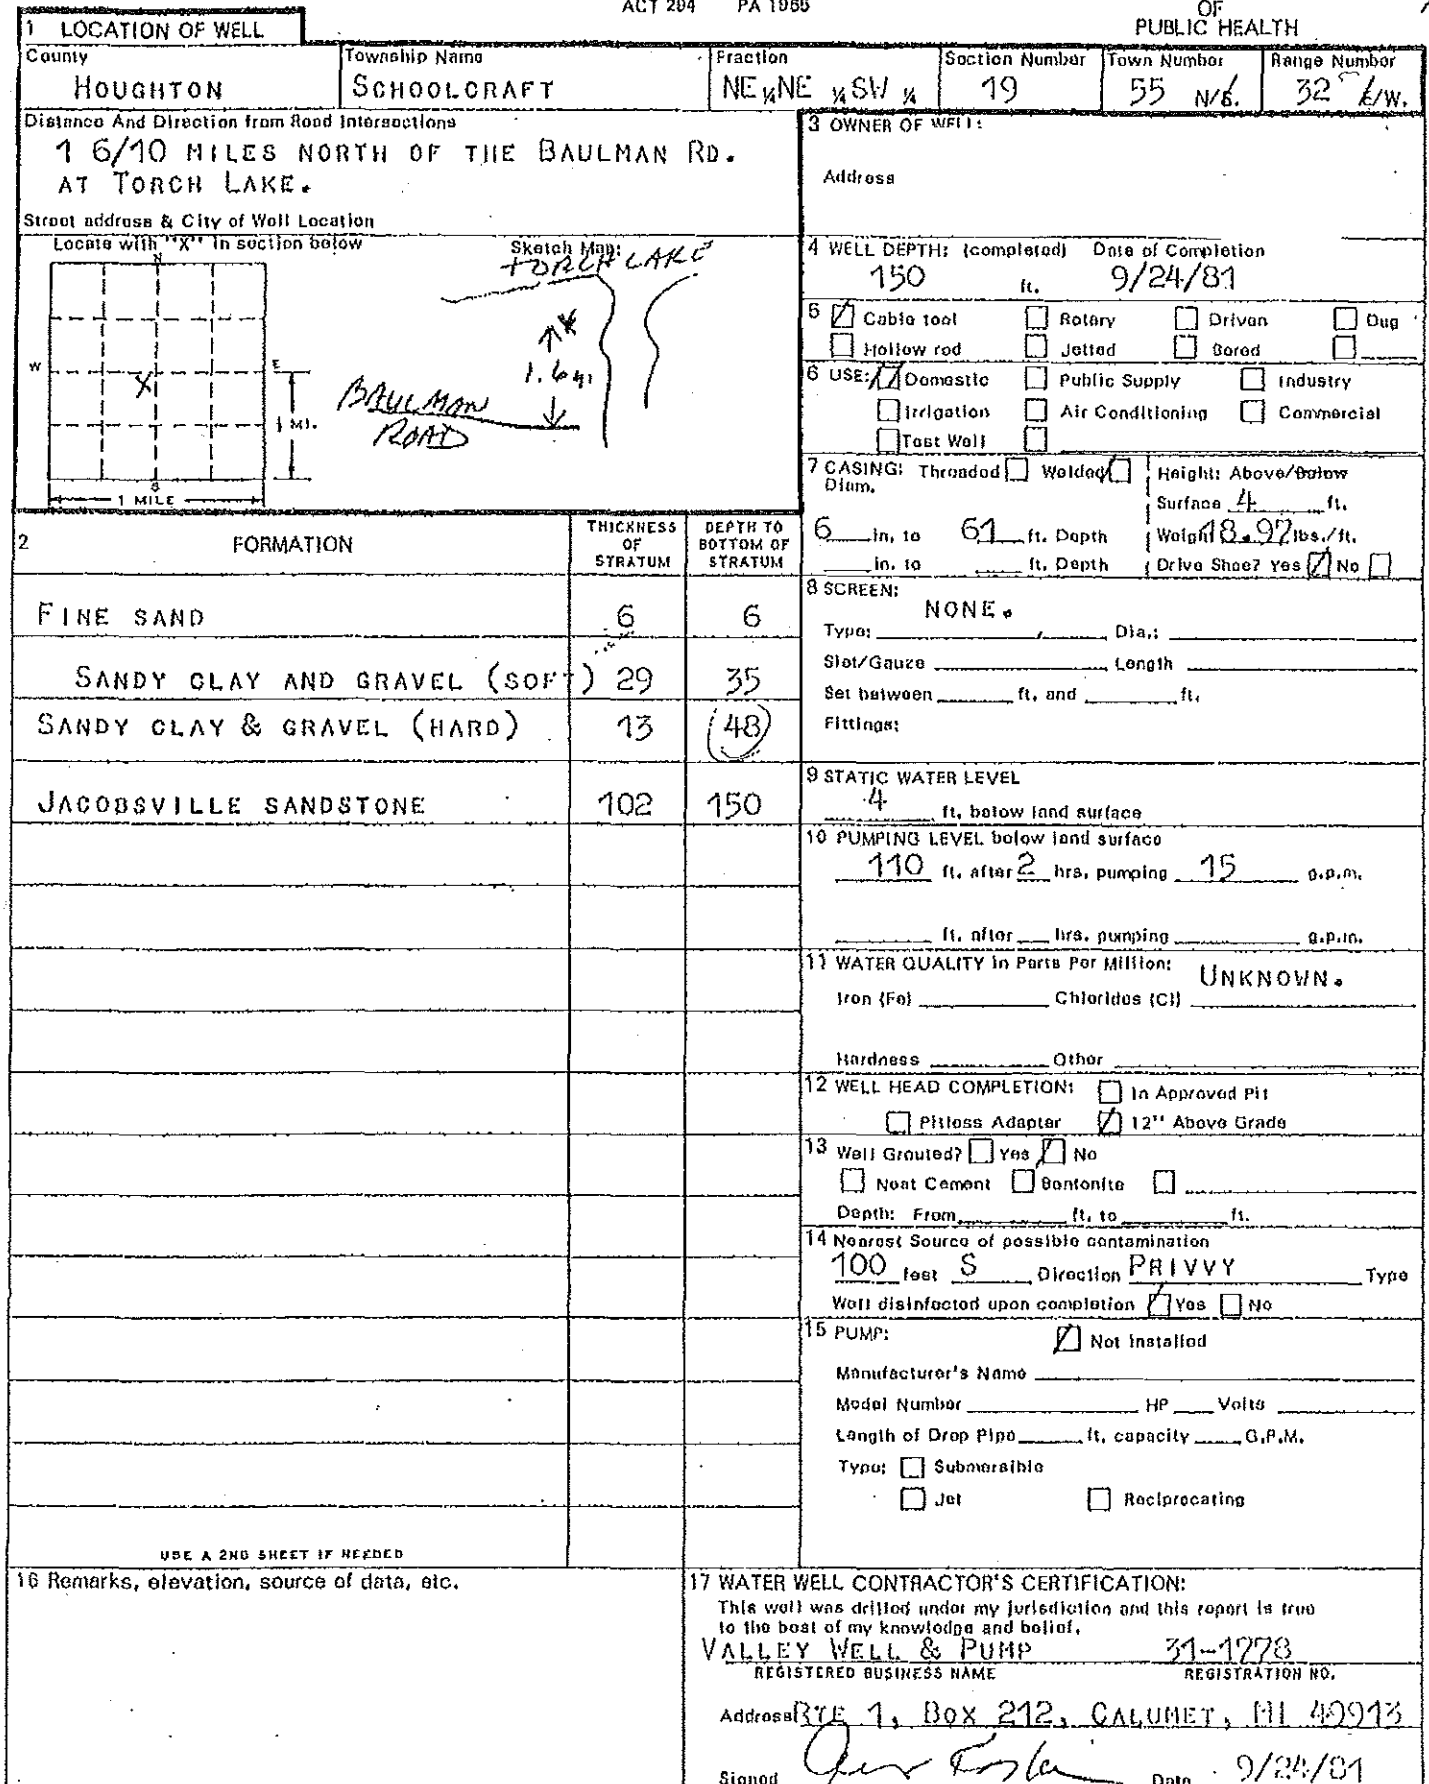 ACT 294 PA 1965
OF
PUBLIC HEALTH
1 LOCATION OF WELL
County
HOUGHTON
Township Name
SCHOOLCRAFT
Fraction
NE ¼ NE ¼ SW ¼
Section Number
19
Town Number
55 N/S.
Range Number
32 E/W.
Distance And Direction from Road Intersections
1 6/10 MILES NORTH OF THE BAULMAN RD.
AT TORCH LAKE.
Street address & City of Well Location
Locate with "X" in section below
N
W
E
S
X
1 MI.
1 MILE
Sketch Map:
TORCH LAKE
1.6 mi
BAULMAN
ROAD
3 OWNER OF WELL:
Address
4 WELL DEPTH: (completed) Date of Completion
150 ft. 9/24/81
5 Cable tool Rotary Driven Dug
Hollow rod Jetted Bored
6 USE: Domestic Public Supply Industry
Irrigation Air Conditioning Commercial
Test Well
7 CASING: Threaded Welded
Diam.
6 in. to 61 ft. Depth
in. to ft. Depth
Height: Above/Below
Surface 4 ft.
Weight 18.97 lbs./ft.
Drive Shoe? Yes No
2 FORMATION
THICKNESS OF STRATUM
DEPTH TO BOTTOM OF STRATUM
FINE SAND 6 6
SANDY CLAY AND GRAVEL (SOFT) 29 35
SANDY CLAY & GRAVEL (HARD) 13 48
JACOBSVILLE SANDSTONE 102 150
USE A 2ND SHEET IF NEEDED
8 SCREEN:
NONE.
Type: Dia.:
Slot/Gauze Length
Set between ft. and ft.
Fittings:
9 STATIC WATER LEVEL
4 ft. below land surface
10 PUMPING LEVEL below land surface
110 ft. after 2 hrs. pumping 15 g.p.m.
ft. after hrs. pumping g.p.m.
11 WATER QUALITY in Parts Per Million: UNKNOWN.
Iron (Fe) Chlorides (Cl)
Hardness Other
12 WELL HEAD COMPLETION: In Approved Pit
Pitless Adapter 12" Above Grade
13 Well Grouted? Yes No
Neat Cement Bentonite
Depth: From ft. to ft.
14 Nearest Source of possible contamination
100 feet S Direction PRIVVY Type
Well disinfected upon completion Yes No
15 PUMP: Not Installed
Manufacturer's Name
Model Number HP Volts
Length of Drop Pipe ft. capacity G.P.M.
Type: Submersible
Jet Reciprocating
16 Remarks, elevation, source of data, etc.
17 WATER WELL CONTRACTOR'S CERTIFICATION:
This well was drilled under my jurisdiction and this report is true
to the best of my knowledge and belief.
VALLEY WELL & PUMP 31-1278
REGISTERED BUSINESS NAME REGISTRATION NO.
Address RTE 1, BOX 212, CALUMET, MI 49913
Signed Date 9/24/81